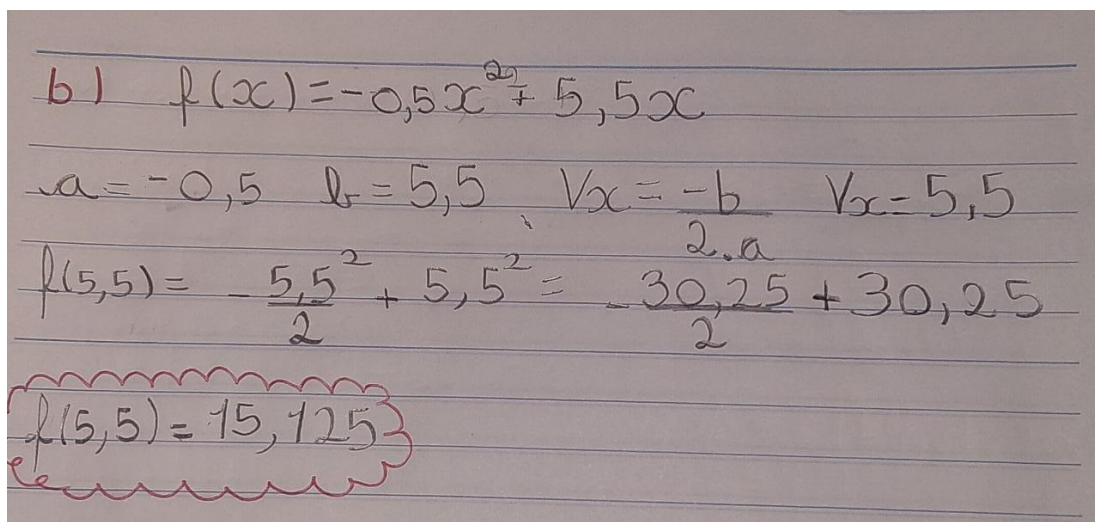 b) f(x) = -0,5x² + 5,5x
a = -0,5 b = 5,5 Vx = -b/2.a Vx = 5,5
f(5,5) = - 5,5²/2 + 5,5² = - 30,25/2 + 30,25
f(5,5) = 15,125